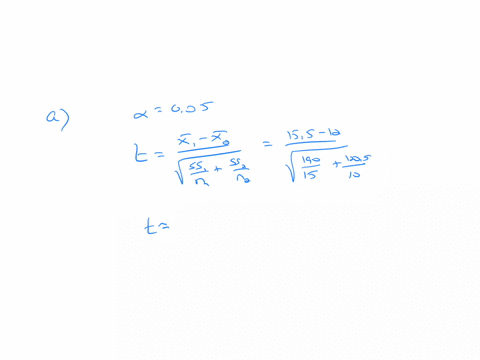 a)
α = 0.05
t = (x̄₁ - x̄₂) / √(SS₁/n₁ + SS₂/n₂) = (15.5 - 12) / √(190/15 + /10)
t =